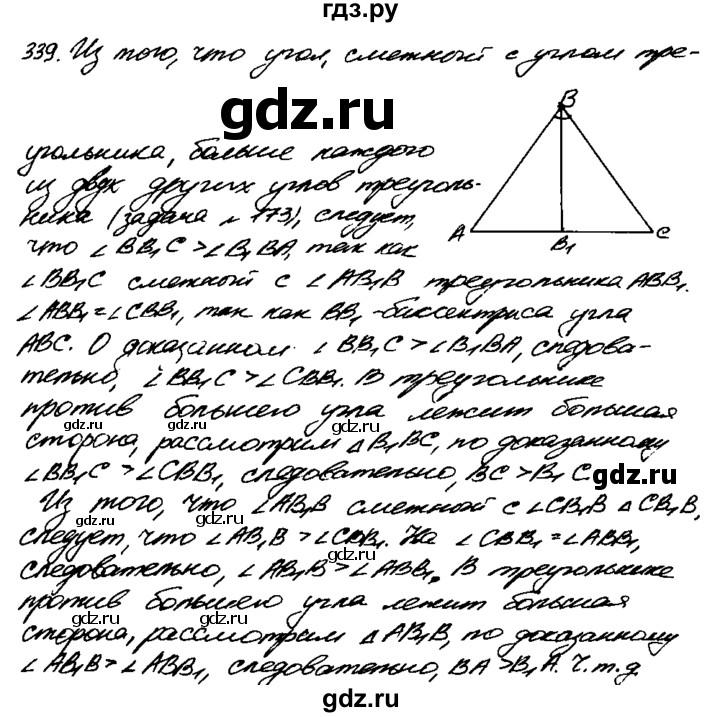 гдз.ру
339. Из того, что угол, смежный с углом тре-
gdz.ru
угольника, больше каждого
из двух других углов треуголь-
ника (задача № 173), следует,
что ∠BB₁C > ∠B₁BA, так как
B
A B₁ C
∠BB₁C смежный с ∠AB₁B треугольника ABB₁.
∠ABB₁ = ∠CBB₁, так как BB₁ - биссектриса угла
ABC. О доказанном ∠BB₁C > ∠B₁BA, следова-
тельно, ∠BB₁C > ∠CBB₁. В треугольнике
против большего угла лежит большая
сторона, рассмотрим △B₁BC, по доказанному
∠BB₁C > ∠CBB₁, следовательно, BC > B₁C.
gdz.ru
Из того, что ∠AB₁B смежный с ∠CB₁B △CB₁B,
gdz.ru
gdz.ru
следует, что ∠AB₁B > ∠CBB₁. На ∠CBB₁ = ∠ABB₁,
следовательно, ∠AB₁B > ∠ABB₁. В треугольнике
против большего угла лежит большая
сторона, рассмотрим △AB₁B, по доказанному
∠AB₁B > ∠ABB₁, следовательно, BA > B₁A. Ч.т.д.
gdz.ru